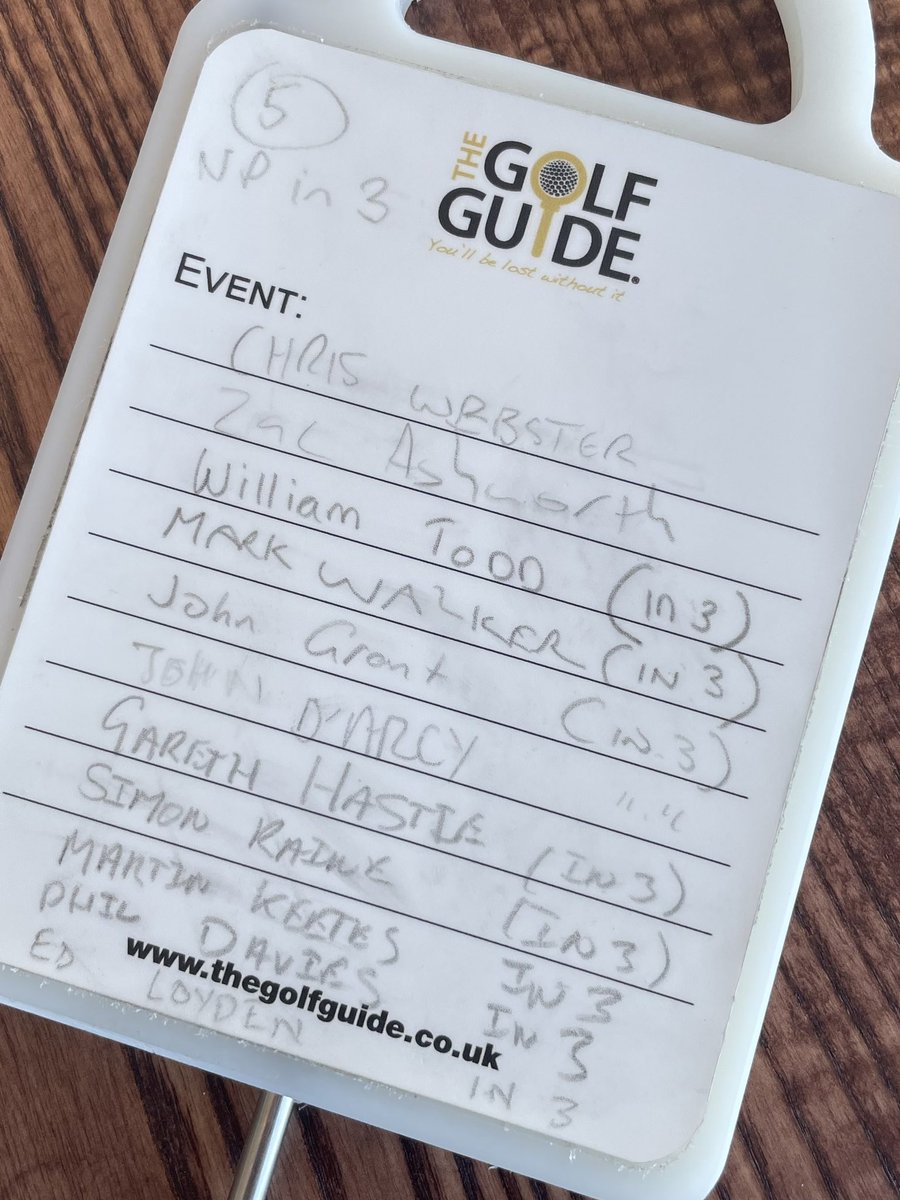 5
NP in 3
THE GOLF
GUIDE.
You'll be lost without it
EVENT:
CHRIS WEBSTER
Zac Ashworth
William TODD (IN 3)
MARK WALKER (IN 3)
John Grant (IN 3)
JOHN D'ARCY " "
GARETH HASTIE (IN 3)
SIMON RAINE (IN 3)
MARTIN KEETES IN 3
PHIL DAVIES IN 3
www.thegolfguide.co.uk
ED LOYDEN IN 3